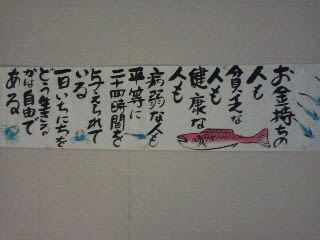 お金持ちの
人も
貧乏な
人も
健康な
人も
病弱な人も
平等に
二十四時間を
与えられて
いる
一日いちにちを
どう生きる
かは自由で
ある